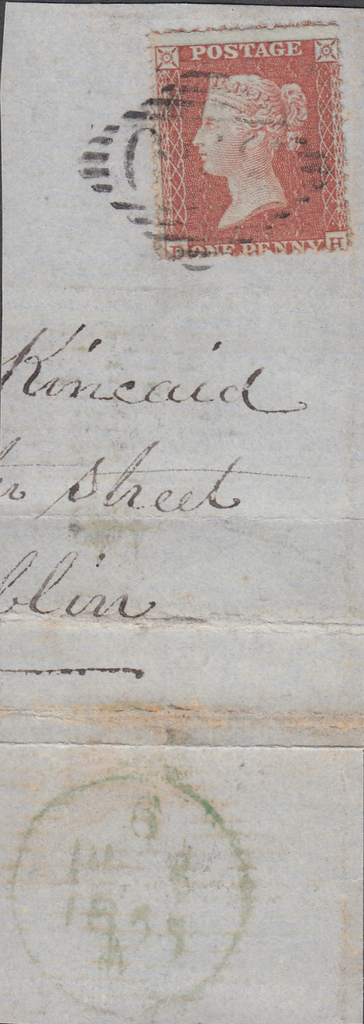 POSTAGE
D ONE PENNY H
Kincaid
street
blin
6
1855
A